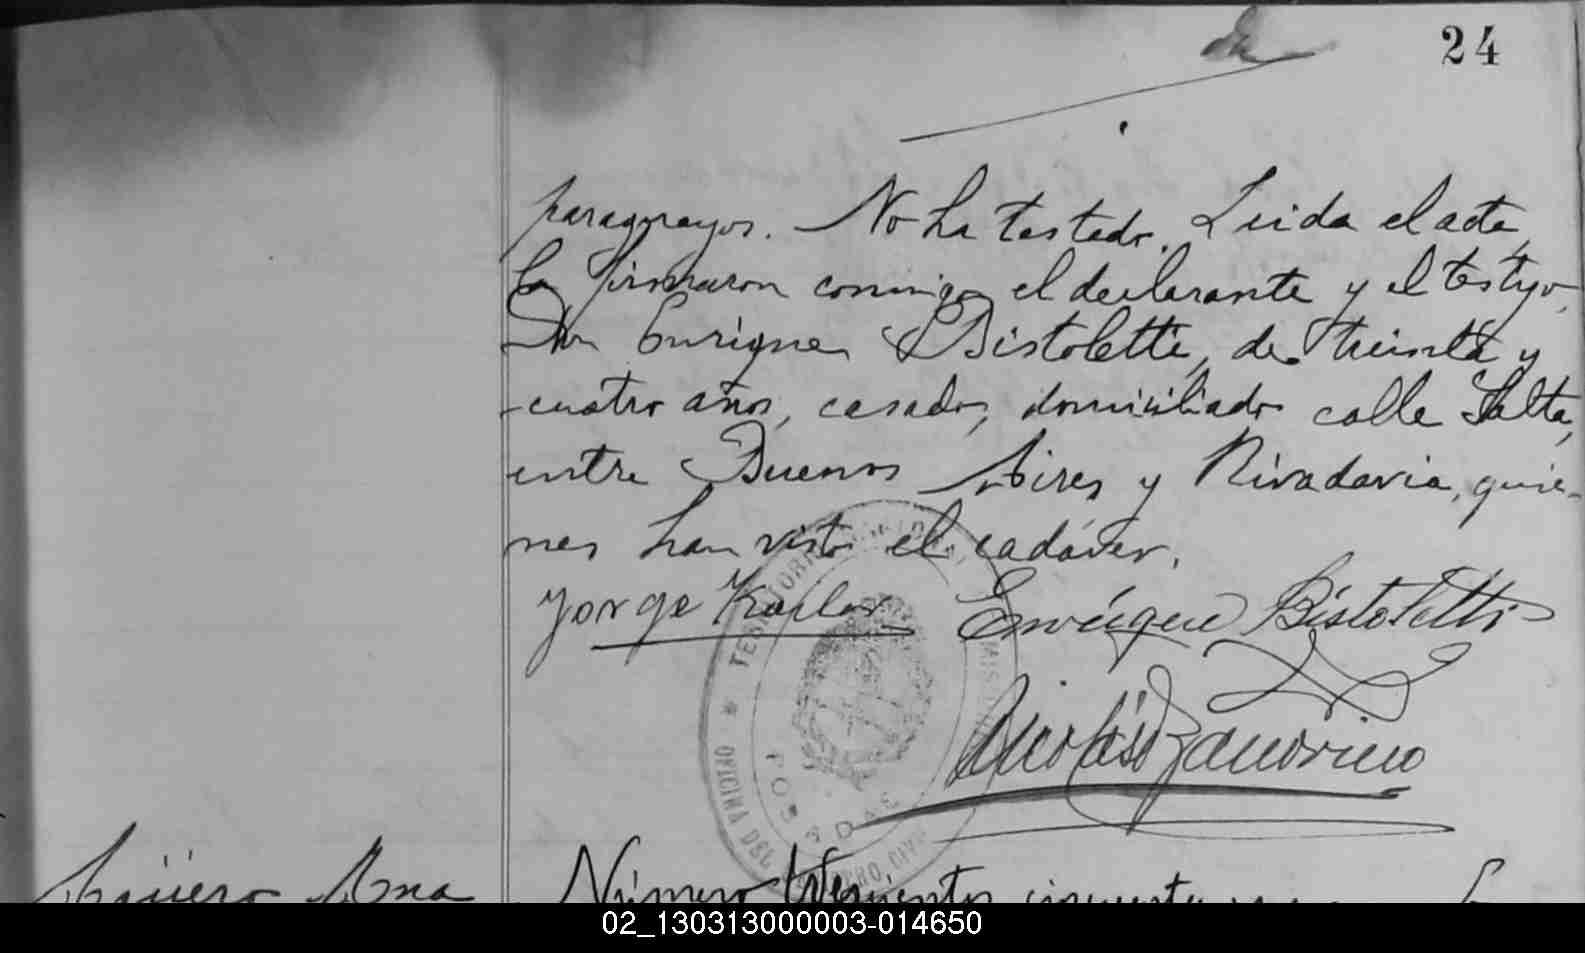 24
paraguayos. No ha testado. Leida el acta,
la firmaron conmigo el declarante y el testigo,
Don Enrique Bistoletti, de treinta y
cuatro años, casado, domiciliado calle Salta,
entre Buenos Aires y Rivadavia, quie-
nes han visto el cadáver.
Jorge Kaplan Enrique Bistoletti
Nicolás Zamorino
TERRITORIO
MISIONES
OFICINA DEL REGISTRO CIVIL
POSADAS
Agüero Ana
Número trescientos cincuenta
02_130313000003-014650